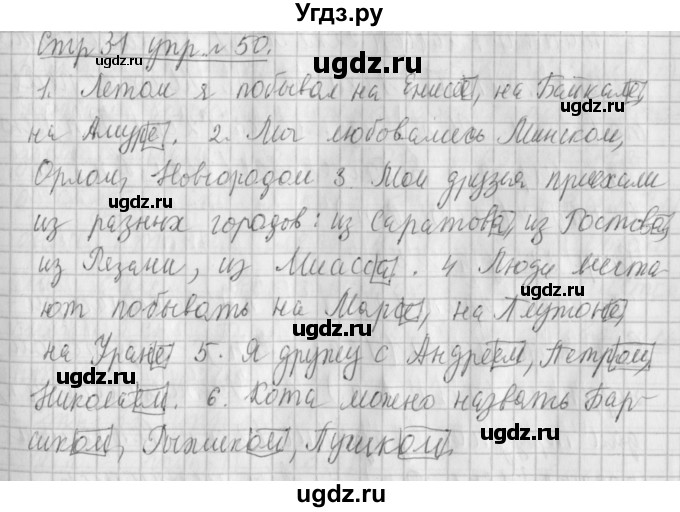 Угдз.ру
Стр 31 упр № 50.
ugdz.ru
1. Летом я побывал на Енисее, на Байкале,
ugdz.ru
на Амуре. 2. Мы любовались Минском,
ugdz.ru
Орлом, Новгородом 3. Мои друзья приехали
ugdz.ru
из разных городов: из Саратова, из Ростова,
из Рязани, из Миасса. 4 Люди мечта-
ugdz.ru
ют побывать на Марсе, на Плутоне,
ugdz.ru ugdz.ru
на Уране 5. Я дружу с Андреем, Петром,
ugdz.ru
Николаем. 6. Кота можно назвать Бар-
ugdz.ru
сиком, Рыжиком, Пушком.
ugdz.ru
ugdz.ru